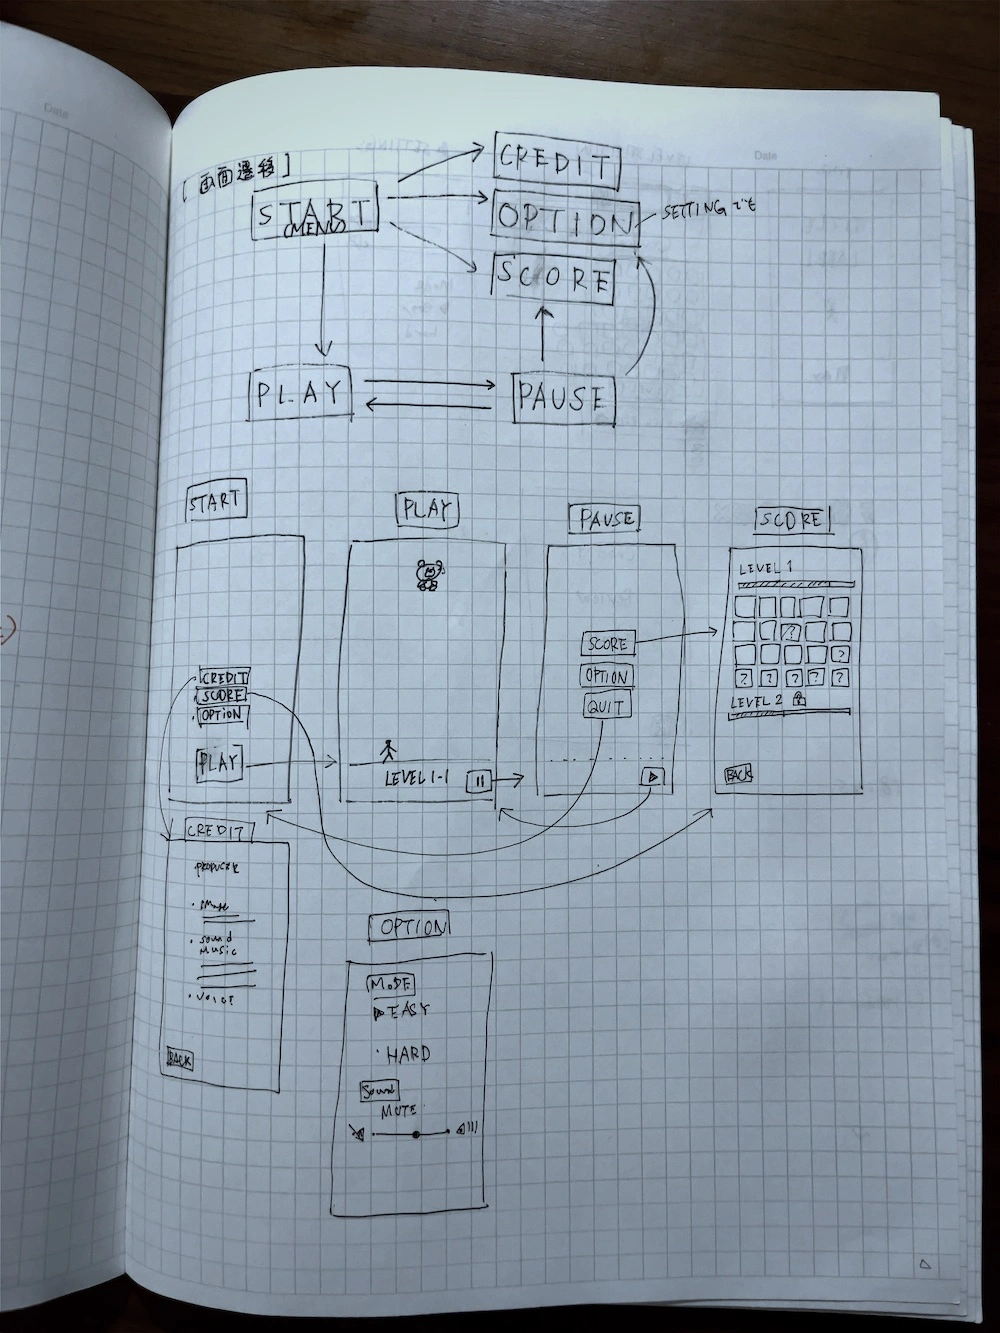 Date
Date
[画面遷移]
START
(MENU)
CREDIT
OPTION
SETTINGでも
SCORE
PLAY
PAUSE
START
CREDIT
SCORE
OPTION
PLAY
PLAY
LEVEL 1-1
PAUSE
SCORE
OPTION
QUIT
SCORE
LEVEL 1
?
?
? ? ? ? ?
LEVEL 2
BACK
CREDIT
PRODUCER
・sound
music
・VOICE
BACK
OPTION
MODE
▶EASY
・HARD
Sound
MUTE